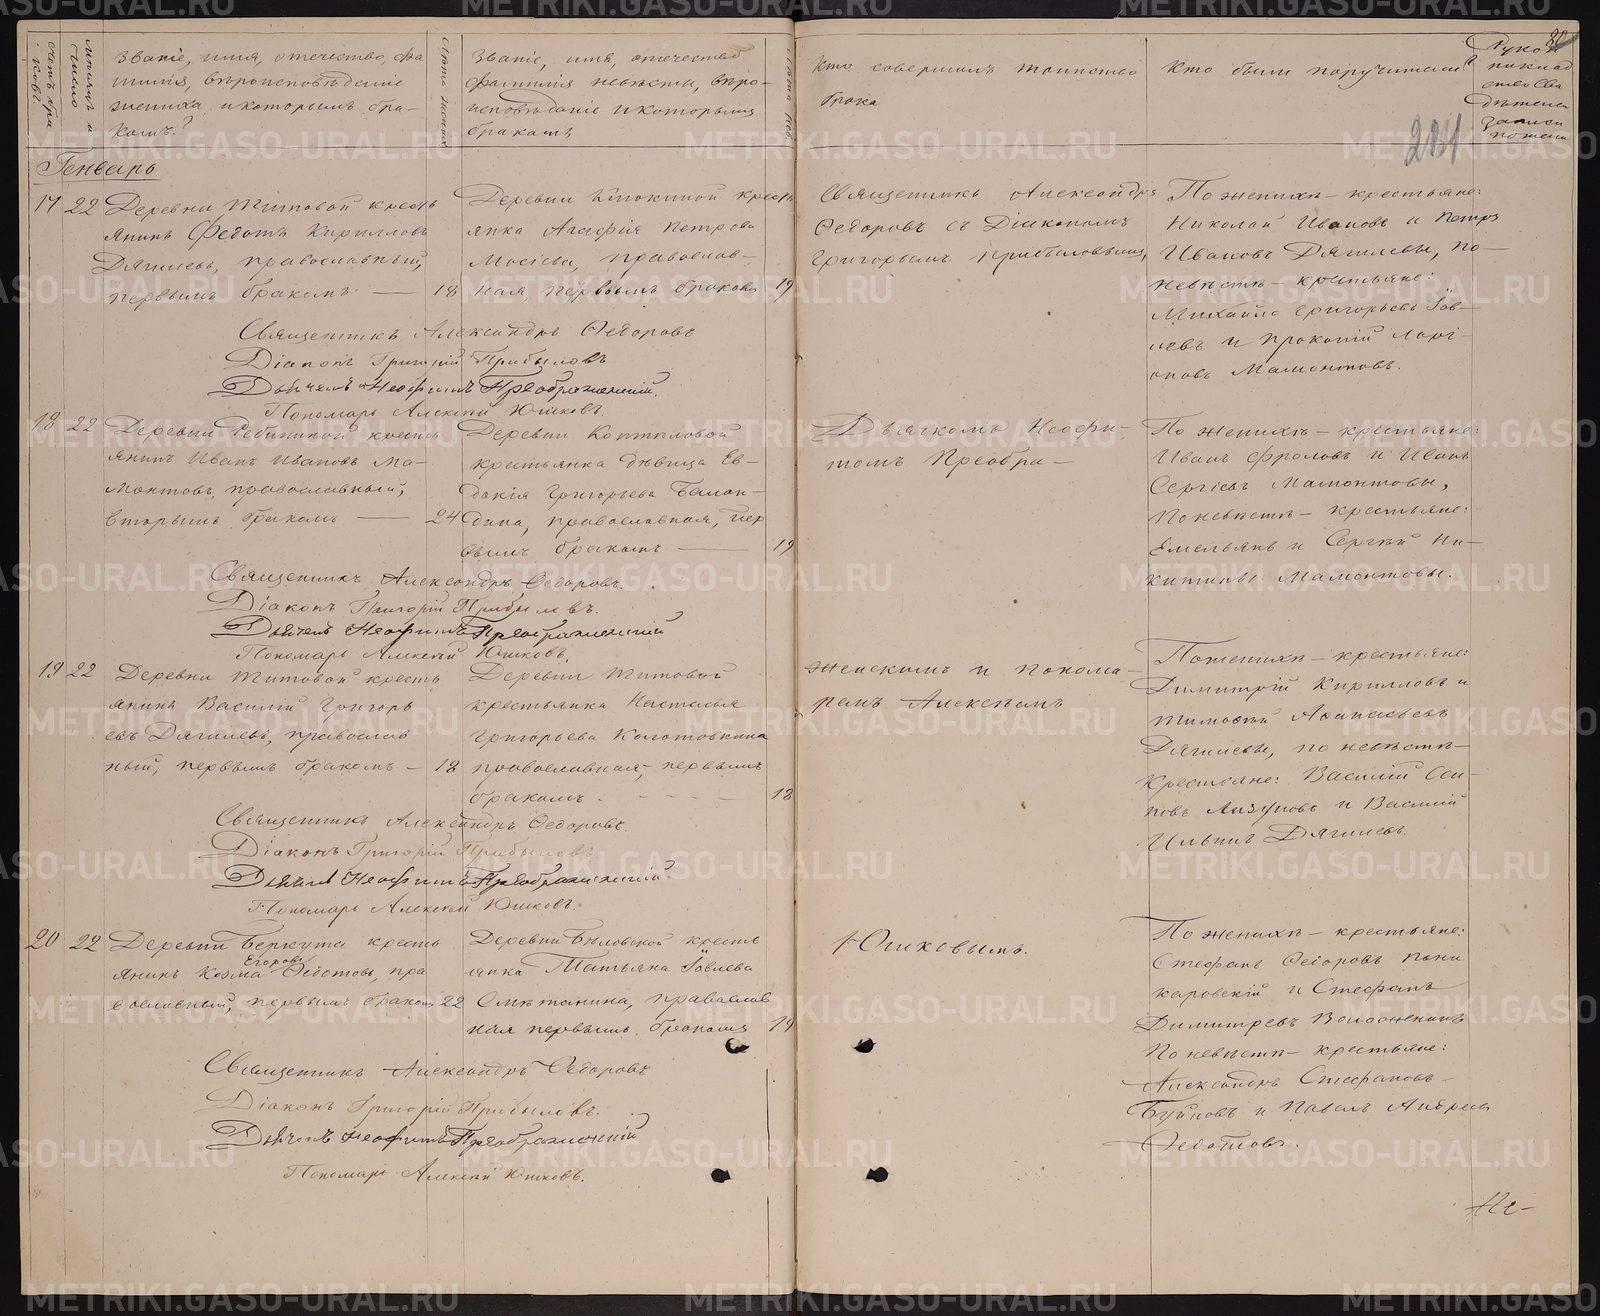 Счетъ бра
ковъ.
Мѣсяцъ и
число
Званіе, имя, отечество, фа
милія, вѣроисповѣданіе
жениха, и которымъ бра-
комъ?
Лѣта жениха
Званіе, имя, отечество
фамилія невѣсты, вѣро-
исповѣданіе и которымъ
бракомъ
Лѣта нев
Кто совершалъ таинство
брака
Кто были поручители?
Рукоп
204
Генварь
17 22 Деревни Титовой кресть
янинъ Федотъ Кирилловъ
Дягилевъ, православный,
первымъ бракомъ — 18
Деревни Клюкиной кресть
янка Агафія Петрова
Мосіева, православ-
ная, первымъ бракомъ 19
Священникъ Александръ
Ѳедоровъ съ Діакономъ
Григорьемъ Прибыловымъ,
По женихѣ – крестьяне:
Николай Ивановъ и Петръ
Ивановъ Дягилевы, по
невѣстѣ – крестьяне:
Михайло Григорьевъ Іов-
левъ и Прокопій Ларі-
оновъ Мамонтовъ.
Священникъ Александръ Ѳедоровъ
Діаконъ Григорій Прибыловъ
Дьячекъ Неофитъ Преображенскій.
Пономарь Алексѣй Юшковъ.
18 22 Деревни Ребининой кресть
янинъ Иванъ Ивановъ Ма-
монтовъ, православный,
вторымъ бракомъ — 24
Деревни Коптяловой
крестьянка дѣвица Ев-
докія Григорьева Балан-
дина, православная, пер
вымъ бракомъ — 19
Дьячкомъ Неофи-
томъ Преобра-
По женихѣ – крестьяне:
Иванъ Фроловъ и Иванъ
Сергіевъ Мамонтовы,
По невѣстѣ – крестьяне:
Емельянъ и Сергѣй Ни-
китины Мамонтовы.
Священникъ Александръ Ѳедоровъ.
Діаконъ Григорій Прибыловъ.
Дьячекъ Неофитъ Преображенскій
Пономарь Алексѣй Юшковъ.
19 22 Деревни Титовой кресть
янинъ Василій Григорь
евъ Дягилевъ, православ
ный, первымъ бракомъ – 18
Деревни Титовой
крестьянка Настасья
Григорьева Колотовкина
православная, первымъ
бракомъ. - - - - 18
женскимъ и Понома-
ремъ Алексѣемъ
По женихѣ – крестьяне:
Димитрій Кирилловъ и
Тимоѳей Аѳанасьевъ
Дягилевы, по невѣстѣ –
Крестьяне: Василій Оси-
повъ Лизуновъ и Василій
Ильинъ Дягилевъ.
Священникъ Александръ Ѳедоровъ.
Діаконъ Григорій Прибыловъ
Дьячекъ Неофитъ Преображенскій.
Пономарь Алексѣй Юшковъ.
20 22 Деревни Беркута кресть
Егоровъ
янинъ Козма Ѳедотовъ, пра
вославный, первымъ бракомъ 22
Деревни Бѣловской кресть
янка Татьяна Іовлева
Смѣтанина, православ
ная первымъ бракомъ 19
Юшковымъ.
По женихѣ – крестьяне:
Стефанъ Ѳедоровъ Пона
каровскій и Стефанъ
Димитревъ Воложенинъ
По невѣстѣ – крестьяне:
Александръ Стефановъ
Буйновъ и Павелъ Андреевъ
Ѳедотовъ.
Священникъ Александръ Ѳедоровъ
Діаконъ Григорій Прибыловъ.
Дьячекъ Неофитъ Преображенскій
Пономарь Алексѣй Юшковъ.
METRIKI.GASO-URAL.RU